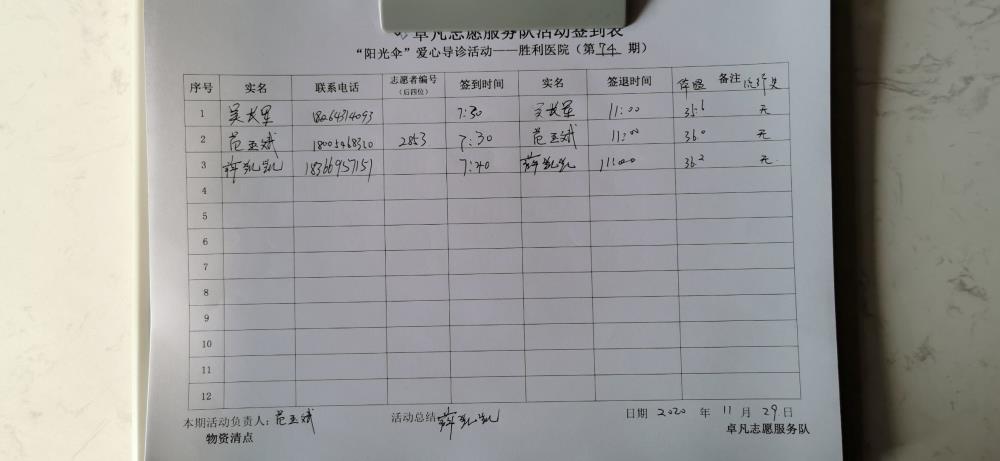 卓凡志愿服务队活动签到表
“阳光伞”爱心导诊活动——胜利医院(第 74 期)
序号 实名 联系电话 志愿者编号(后四位) 签到时间 实名 签退时间 体温 备注
1 吴长军 18264314093 7:30 吴长军 11:00 35.6 无
2 范玉斌 18005468320 2853 7:30 范玉斌 11:00 36.0 无
3 薛凯凯 18366957151 7:40 薛凯凯 11:00 36.2 无
4
5
6
7
8
9
10
11
12
本期活动负责人:范玉斌 活动总结 薛凯凯 日期 2020 年 11 月 29 日
物资清点 卓凡志愿服务队